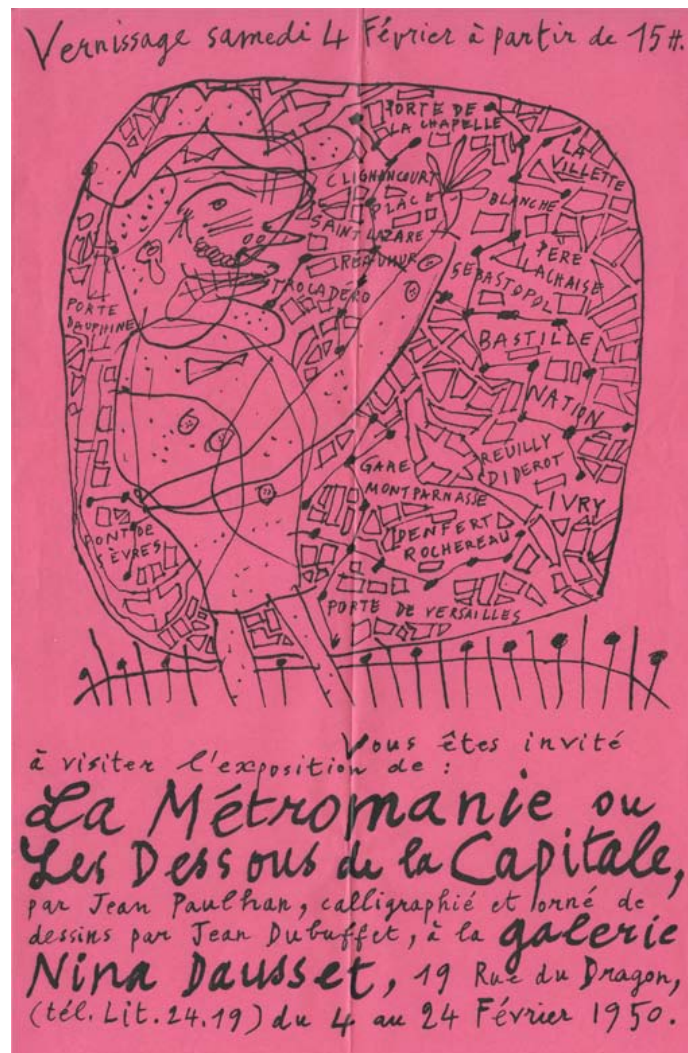 Vernissage samedi 4 Février à partir de 15 H.
PORTE DE
LA CHAPELLE
LA
VILLETTE
CLIGNANCOURT
PLACE
BLANCHE
SAINT LAZARE
PÈRE
LACHAISE
RÉAUMUR
SÉBASTOPOL
TROCADÉRO
PORTE
DAUPHINE
BASTILLE
NATION
REUILLY
DIDEROT
GARE
MONTPARNASSE
IVRY
DENFERT
ROCHEREAU
PONT DE
SÈVRES
PORTE DE VERSAILLES
Vous êtes invité
à visiter l'exposition de :
La Métromanie ou
Les Dessous de la Capitale,
par Jean Paulhan, calligraphié et orné de
dessins par Jean Dubuffet, à la galerie
Nina Dausset, 19 Rue du Dragon,
(tél. Lit. 24.19) du 4 au 24 Février 1950.